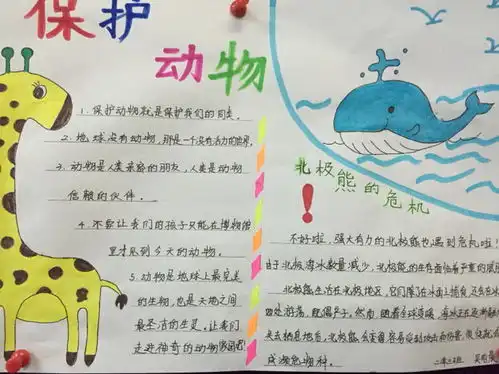 保护
动物
1. 保护动物就是保护我们的同类。
2. 地球没有动物,那是一个没有活力的世界。
3. 动物是人类亲密的朋友,人类是动物
信赖的伙伴。
4. 不能让我们的孩子只能在博物馆
里才见到今天的动物。
5. 动物是地球上最完美
的生物,也是天地之间
最圣洁的生灵。让我们
走进神奇的动物
北极熊的危机
!
不好啦,强大有力的北极熊也遇到危机啦!
由于北极海冰数量减少,北极熊的生存面临着严重的
北极熊生活在北极地区,它们除了在冰面上捕食,还会在冰
处游荡,
然而,随着全球变暖,海冰正在逐渐
失去栖息地后,北极熊会变得容易受到攻击而伤害,
成濒危物种。
二年三班